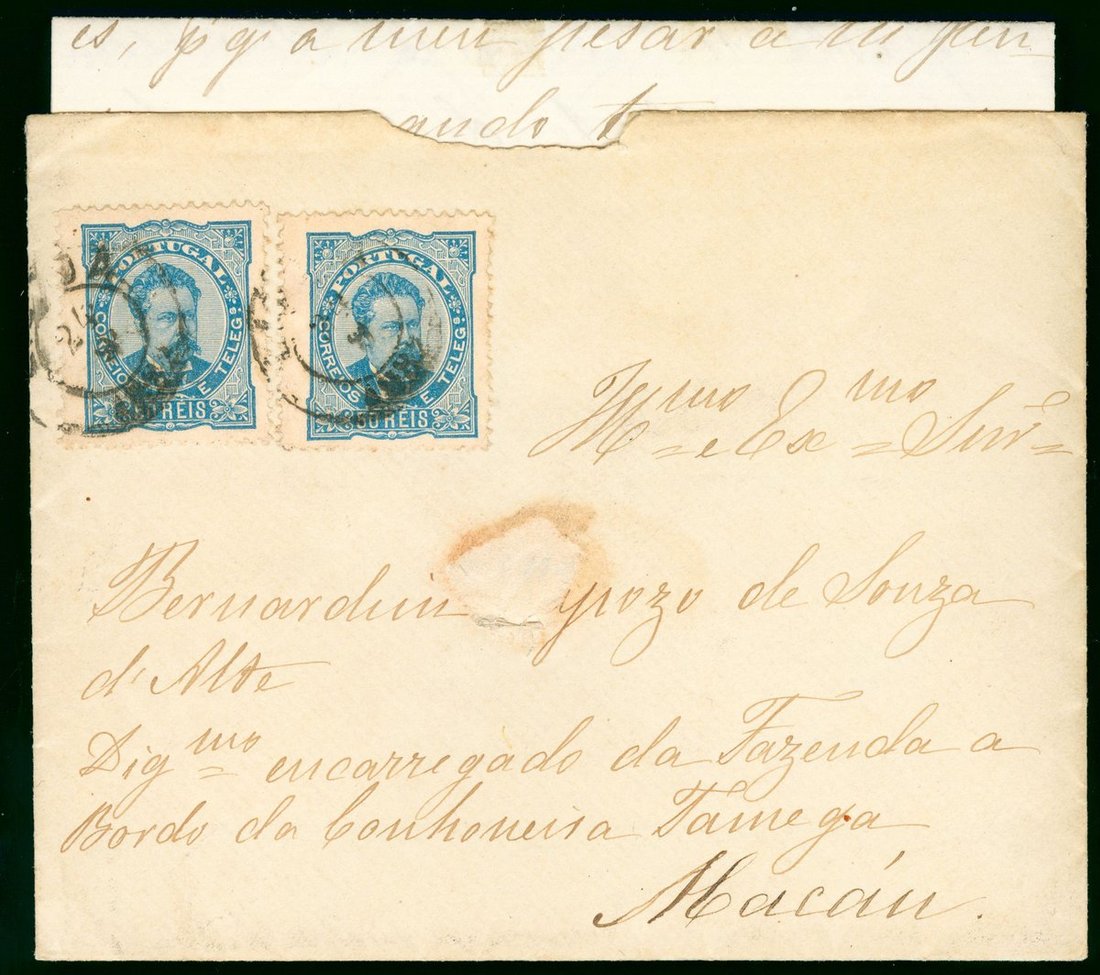 es, pg a meu pesar a m
gudo t
PORTUGAL
CORREIOS E TELEG
50 REIS
PORTUGAL
CORREIOS E TELEG
50 REIS
Illmo e Exmo Snr
Bernardin pozo de Souza
d'Alte
Digmo encarregado da Fazenda a
Bordo da Canhoneira Tamega
Macáu.